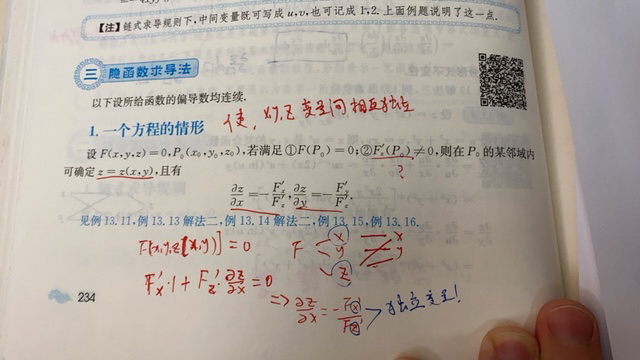 【注】链式求导规则下,中间变量既可写成 u,v,也可记成 1,2.上面例题说明了这一点.
三 隐函数求导法
以下设所给函数的偏导数均连续.
使, x,y,z 变量间相互独立
1. 一个方程的情形
设 F(x,y,z)=0,P₀(x₀,y₀,z₀),若满足①F(P₀)=0;②F′z(P₀)≠0,则在 P₀ 的某邻域内
可确定 z=z(x,y),且有
?
∂z/∂x=-F′x/F′z, ∂z/∂y=-F′y/F′z.
见例 13.11,例 13.13 解法二,例 13.14 解法二,例 13.15,例 13.16.
F[x,y,z(x,y)]=0
F x y z x y
F′x·1+F′z·∂z/∂x=0
⇒ ∂z/∂x=-F′x/F′z 独立变量!
234